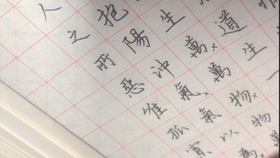 道生
生萬物萬
抱陽沖氣以為
人之所惡唯孤